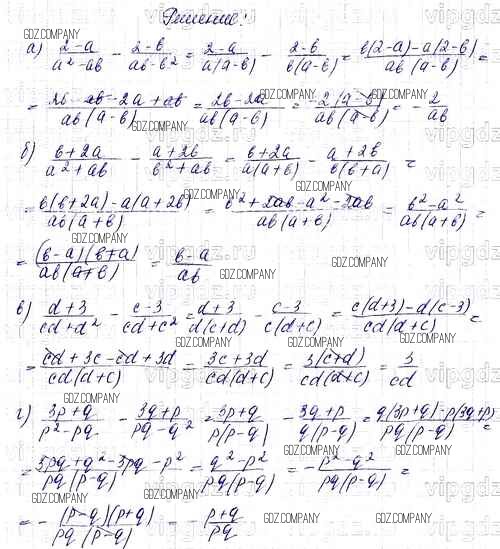 Решение:
а) (2-a)/(a²-ab) - (2-b)/(ab-b²) = (2-a)/(a(a-b)) - (2-b)/(b(a-b)) = (b(2-a)-a(2-b))/(ab(a-b)) =
= (2b-ab-2a+ab)/(ab(a-b)) = (2b-2a)/(ab(a-b)) = (-2(a-b))/(ab(a-b)) = -2/(ab)
б) (b+2a)/(a²+ab) - (a+2b)/(b²+ab) = (b+2a)/(a(a+b)) - (a+2b)/(b(b+a)) =
= (b(b+2a)-a(a+2b))/(ab(a+b)) = (b²+2ab-a²-2ab)/(ab(a+b)) = (b²-a²)/(ab(a+b)) =
= ((b-a)(b+a))/(ab(a+b)) = (b-a)/(ab)
в) (d+3)/(cd+d²) - (c-3)/(cd+c²) = (d+3)/(d(c+d)) - (c-3)/(c(d+c)) = (c(d+3)-d(c-3))/(cd(d+c)) =
= (cd+3c-cd+3d)/(cd(d+c)) = (3c+3d)/(cd(d+c)) = (3(c+d))/(cd(d+c)) = 3/(cd)
г) (3p+q)/(p²-pq) - (3q+p)/(pq-q²) = (3p+q)/(p(p-q)) - (3q+p)/(q(p-q)) = (q(3p+q)-p(3q+p))/(pq(p-q)) =
= (3pq+q²-3pq-p²)/(pq(p-q)) = (q²-p²)/(pq(p-q)) = -(p²-q²)/(pq(p-q)) =
= -((p-q)(p+q))/(pq(p-q)) - -(p+q)/(pq)
GDZ.COMPANY
vipgdz.ru